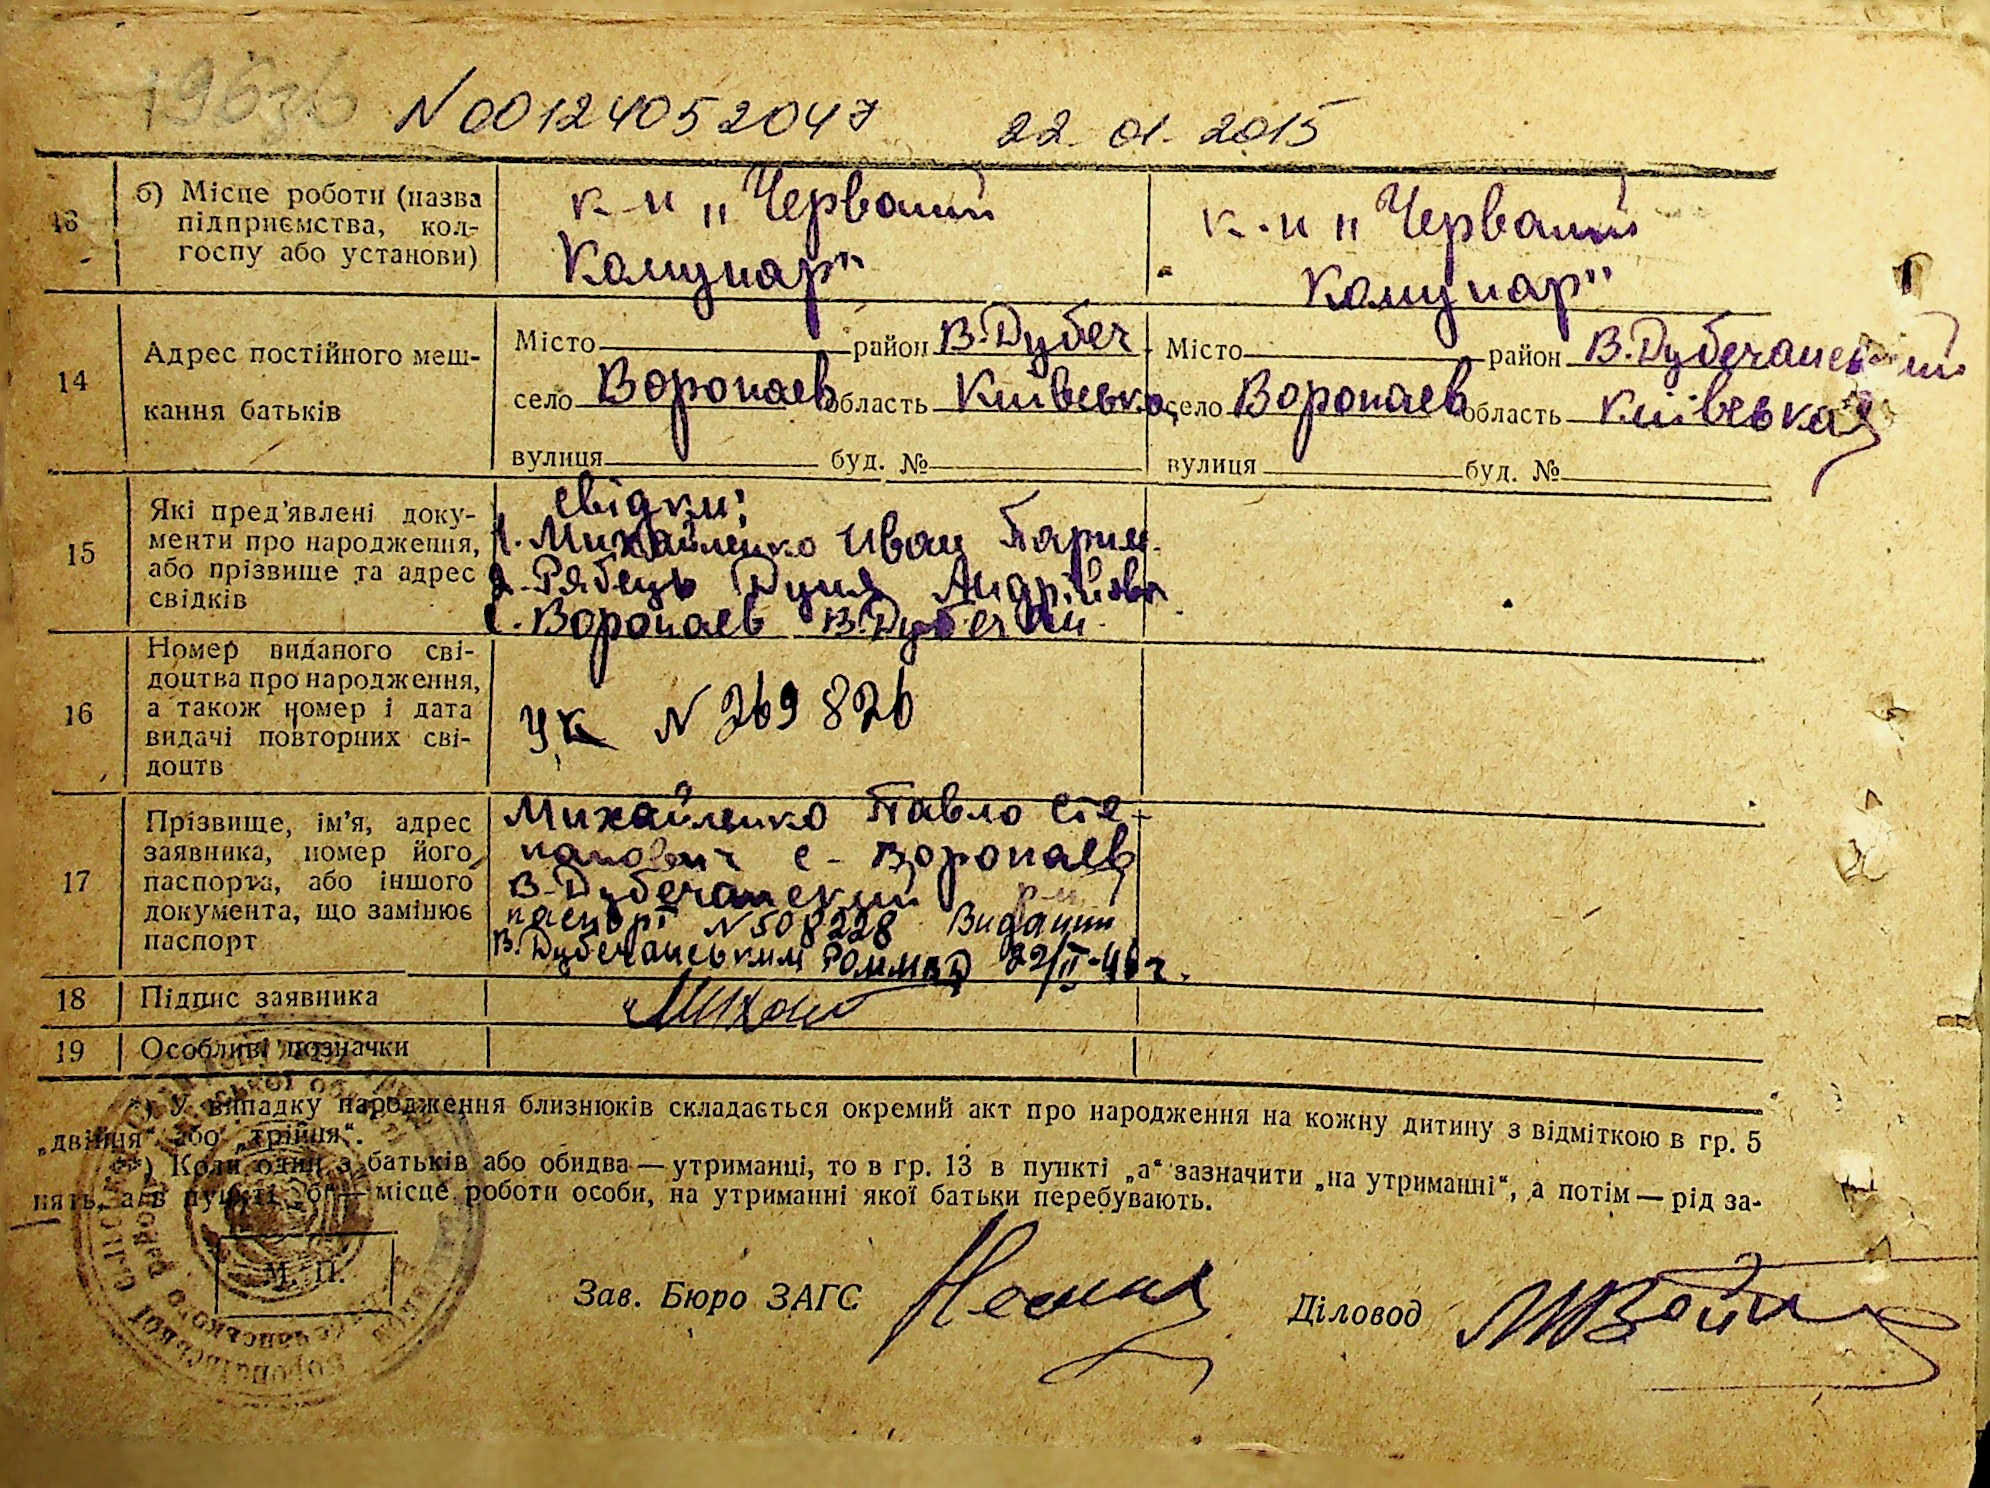 N00124052047 22. 01. 2015
13 б) Місце роботи (назва підприємства, кол-
госпу або установи)
к-п „Червоний
Комунар“
к.-п „Червоний
Комунар“
14 Адрес постійного меш-
кання батьків
Місто район В.Дубеч
село Воропаев область Київська
вулиця буд. №
Місто район В.Дубечанський
село Воропаев область Київська
вулиця буд. №
15 Які пред'явлені доку-
менти про народження,
або прізвище та адрес
свідків
свідки:
1. Михайленко Иван
2. Рябець Дуня Андріївна
с. Воропаев В.Дубечан.
16 Номер виданого сві-
доцтва про народження,
а також номер і дата
видачі повторних сві-
доцтв
УК N 269826
17 Прізвище, ім'я, адрес
заявника, номер його
паспорта, або іншого
документа, що замінює
паспорт
Михайленко Павло Сте-
панович с. Воропаев
В-Дубечанский р-н
паспорт N 508228 Виданий
В. Дубечанським 22/II-46 г.
18 Підпис заявника
19 Особливі позначки
*) У випадку народження близнюків складається окремий акт про народження на кожну дитину з відміткою в гр. 5
„двійня“ або „трійня“.
**) Коли один з батьків або обидва — утриманці, то в гр. 13 в пункті „а“ зазначити „на утриманні“, а потім — рід за-
нять, а в пункті „б“ — місце роботи особи, на утриманні якої батьки перебувають.
М. П.
Зав. Бюро ЗАГС
Діловод